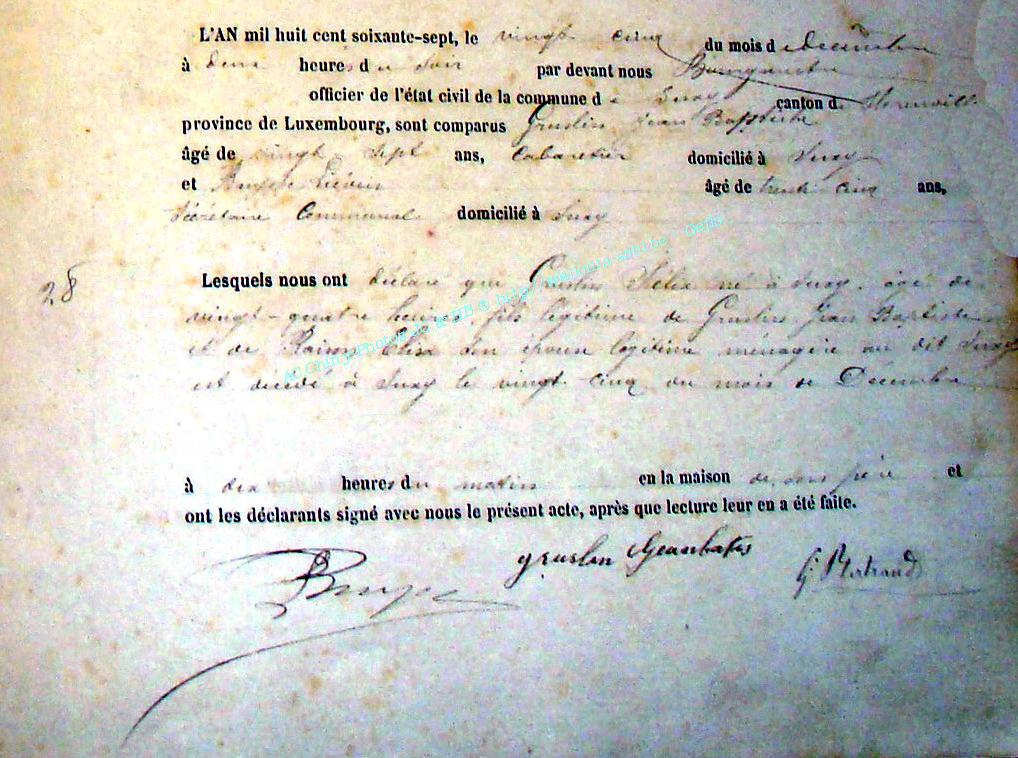 L'AN mil huit cent soixante-sept, le vingt cinq du mois d e décembre
à deux heures d u soir par devant nous
officier de l'état civil de la commune d e Suxy canton d
province de Luxembourg, sont comparus Gruslin Jean Baptiste
âgé de vingt sept ans, Cabaretier domicilié à Suxy
et âgé de trente cinq ans,
Secrétaire Communal domicilié à Suxy
28
Lesquels nous ont déclaré que Gruslin Félix né à Suxy, âgé de
vingt-quatre heures, fils légitime de Gruslin Jean Baptiste
et de Elisa son épouse légitime ménagère au dit Suxy
est décédé à Suxy le vingt-cinq du mois de Décembre
à dix heures du matin en la maison de son père et
ont les déclarants signé avec nous le présent acte, après que lecture leur en a été faite.
gruslin